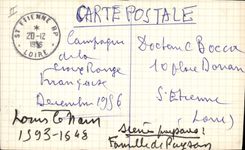 II
CARTE POSTALE
ST ETIENNE RP
20-12
1956
LOIRE
Campagne
de la
Croix Rouge
Française
Decembre 1956
Docteur Bocca
10 place Dorian
St Etienne
(Loire)
Louis Le Nain
1593-1648
Série paysans
Famille de Paysans